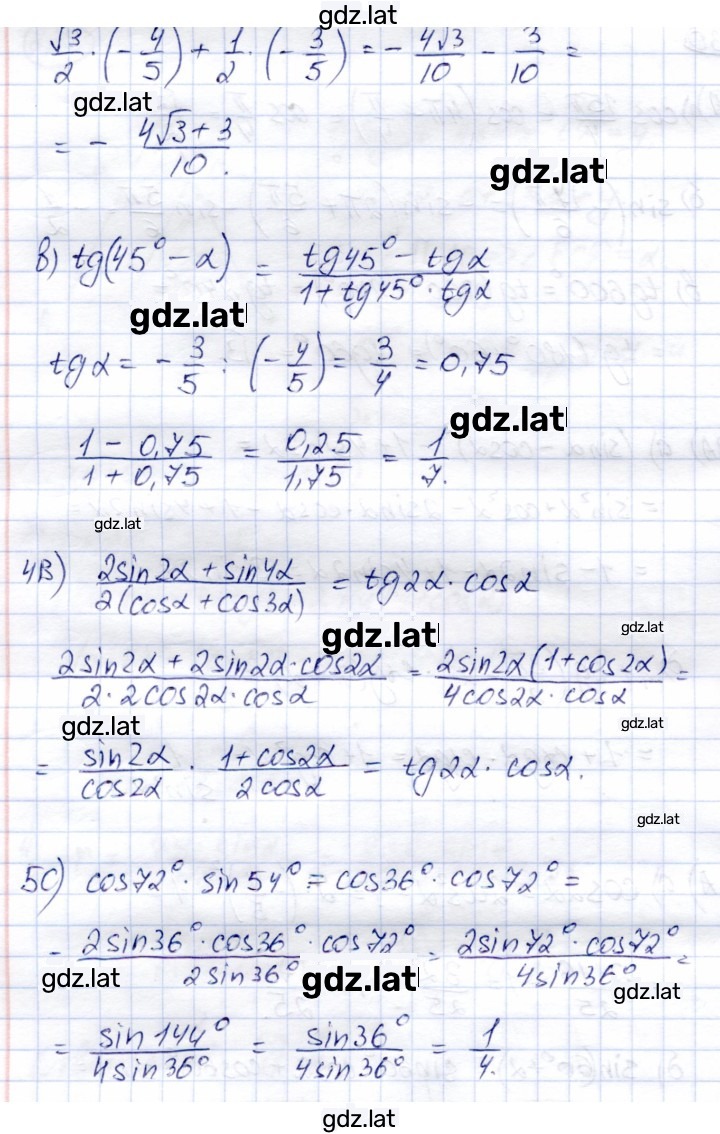 gdz.lat
√3/2 · (-4/5) + 1/2 · (-3/5) = - 4√3/10 - 3/10 =
gdz.lat
= - (4√3+3)/10.
gdz.lat
в) tg(45° - α) = (tg45° - tgα)/(1 + tg45° · tgα)
gdz.lat
tgα = - 3/5 : (-4/5) = 3/4 = 0,75
gdz.lat
(1 - 0,75)/(1 + 0,75) = 0,25/1,75 = 1/7.
gdz.lat
4В) (2sin2α + sin4α)/(2(cosα + cos3α)) = tg2α · cosα
gdz.lat gdz.lat
(2sin2α + 2sin2α·cos2α)/(2·2cos2α·cosα) = (2sin2α(1+cos2α))/(4cos2α·cosα) =
gdz.lat gdz.lat
= sin2α/cos2α · (1+cos2α)/(2cosα) = tg2α · cosα.
gdz.lat
5С) cos72° · sin54° = cos36° · cos72° =
- (2sin36°·cos36°·cos72°)/(2sin36°) = (2sin72°·cos72°)/(4sin36°) =
gdz.lat gdz.lat gdz.lat
= sin144°/(4sin36°) = sin36°/(4sin36°) = 1/4.
gdz.lat